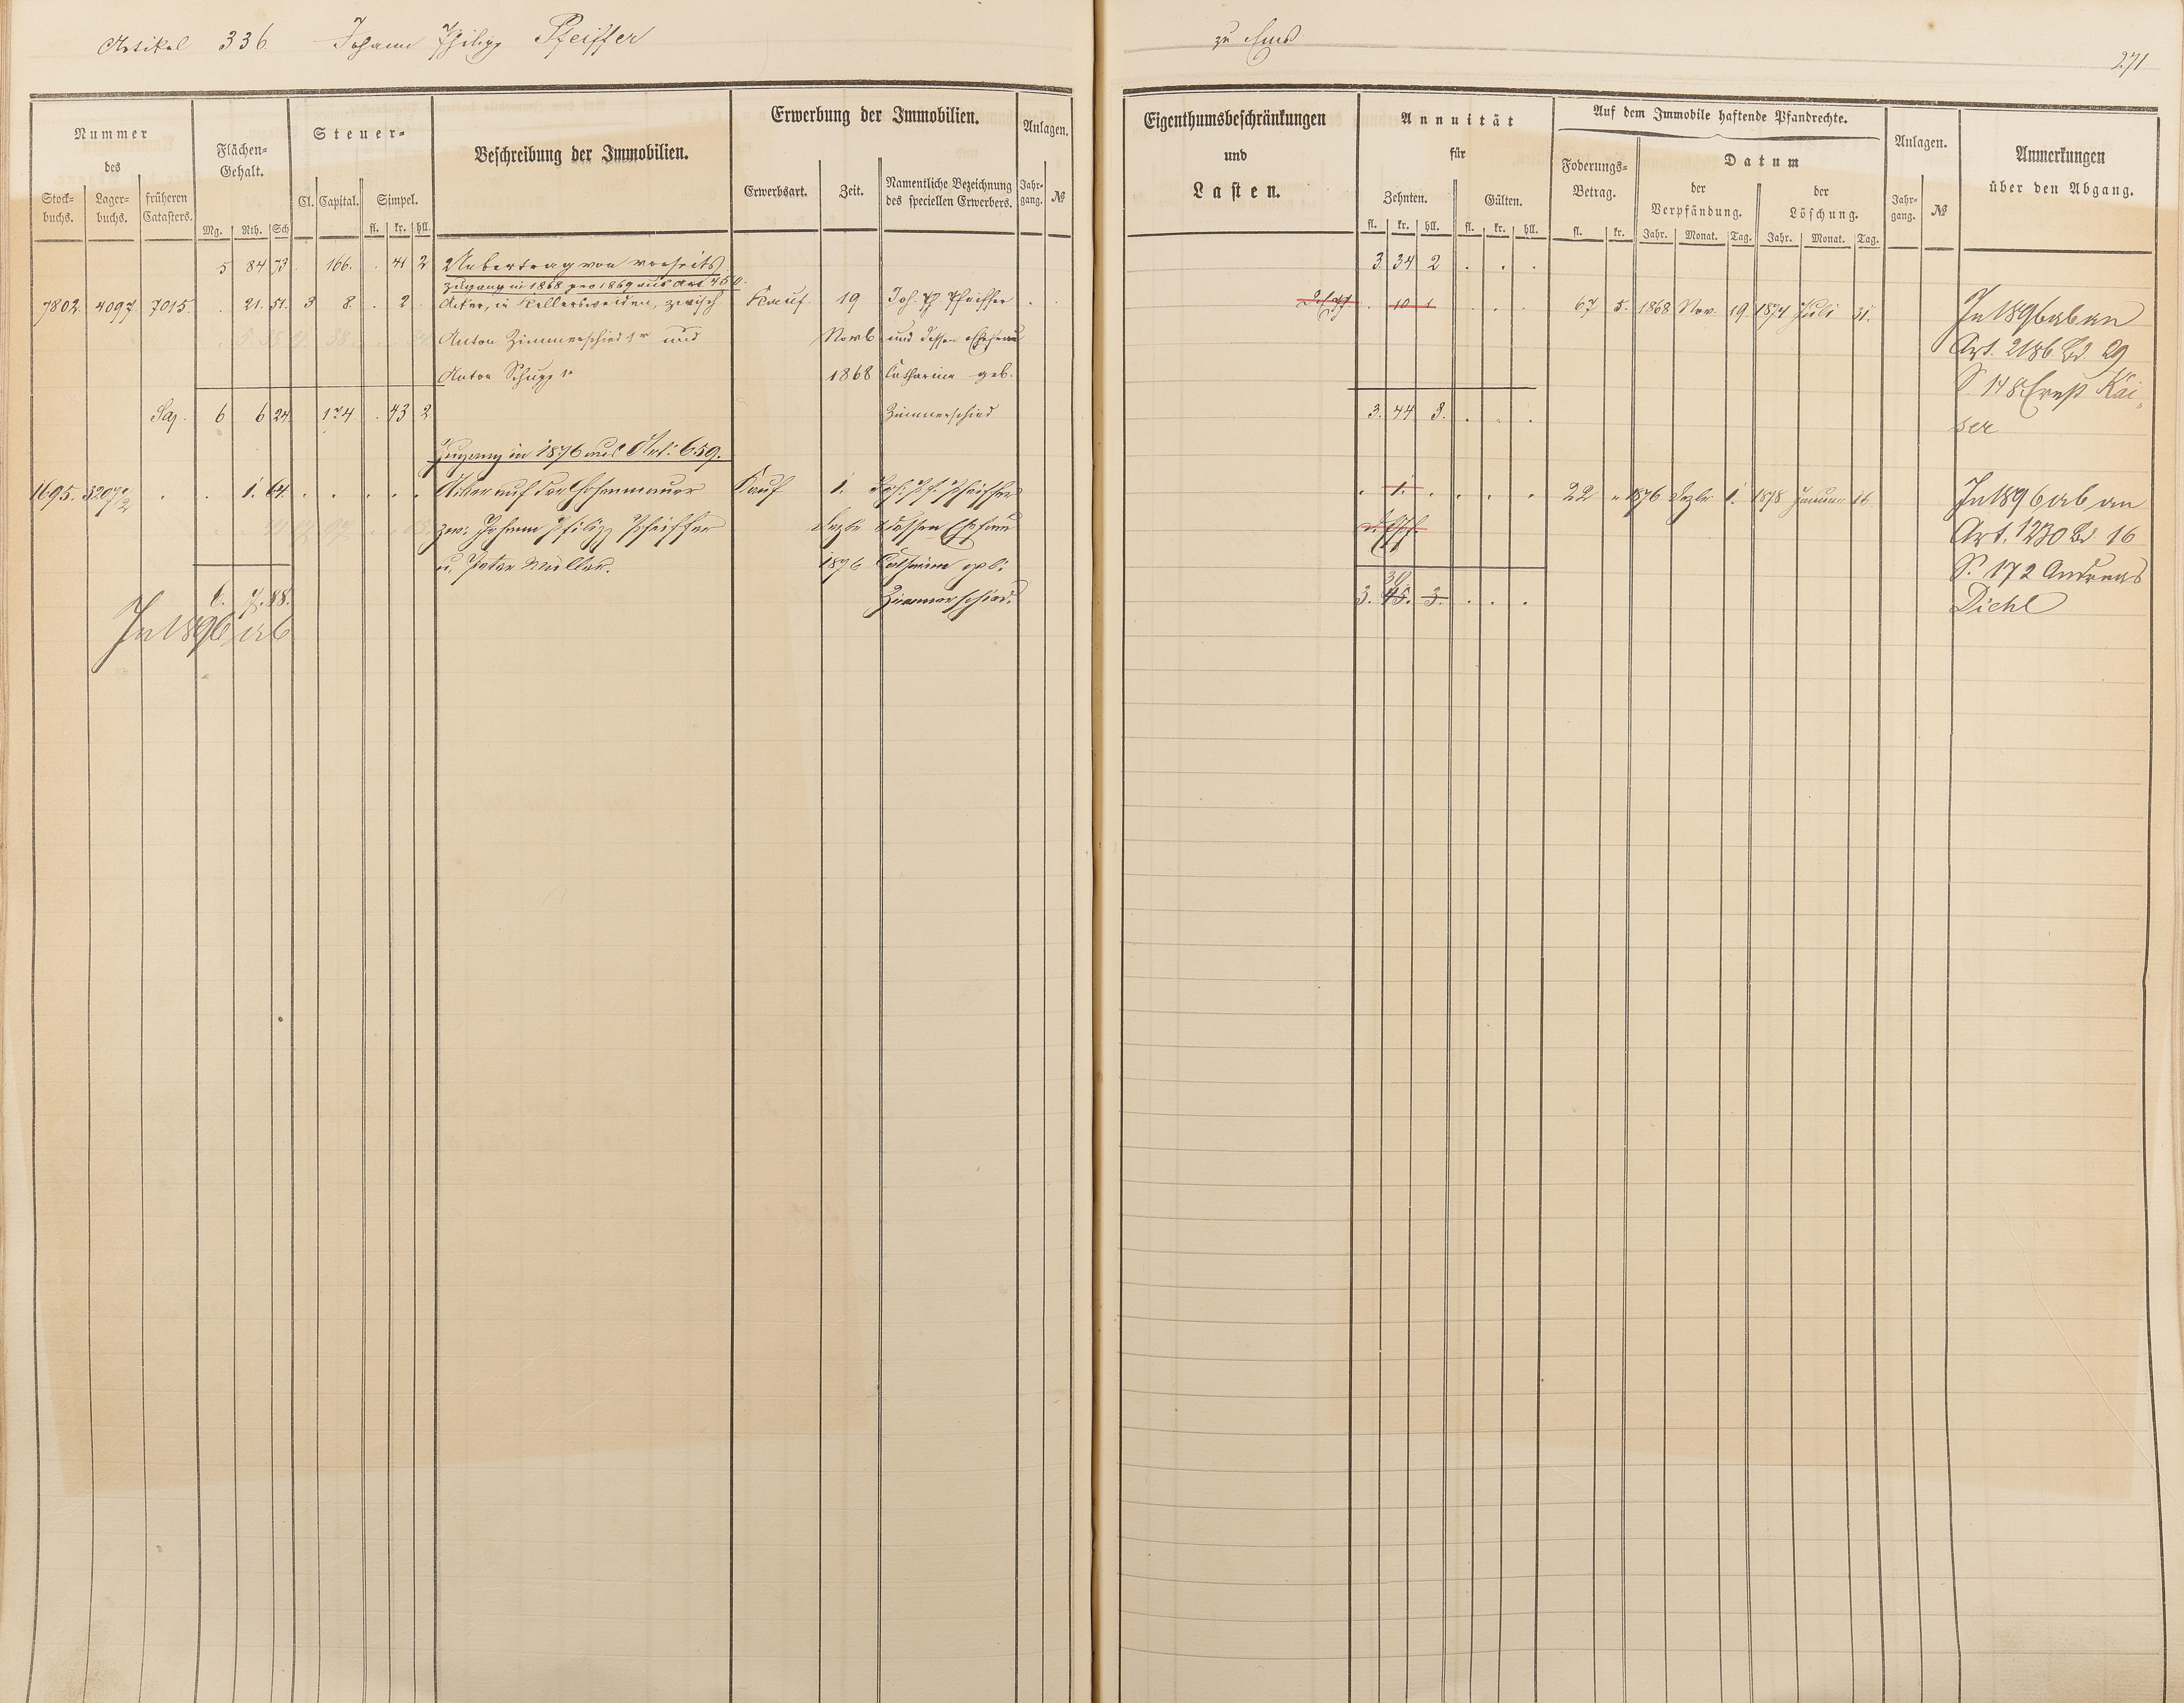 Artikel 336. Johann Philipp Pfeiffer
zu Ems
271
Nummer
des
Stock-
buchs.
Lager-
buchs.
früheren
Catasters.
Flächen-
Gehalt.
Mg. Rth. Sch
Steuer-
Cl. Capital. Simpel.
fl. kr. hll.
Beschreibung der Immobilien.
Erwerbung der Immobilien.
Erwerbsart. Zeit.
Namentliche Bezeichnung
des speciellen Erwerbers.
Anlagen.
Jahr-
gang. №
Eigenthumsbeschränkungen
und
Lasten.
Annuität
für
Zehnten. Gülten.
fl. kr. hll. fl. kr. hll.
Auf dem Immobile haftende Pfandrechte.
Foderungs-
Betrag.
fl. kr.
Datum
der
Verpfändung.
Jahr. Monat. Tag.
der
Löschung.
Jahr. Monat. Tag.
Anlagen.
Jahr-
gang. №
Anmerkungen
über den Abgang.
5 84 73 . 166. . 41 2 Uebertrag von vorseits 3 34 2 . . .
Zugang in 1868 pro 1869 aus Art 450.
7802. 4097. 7015. . 21. 51. 3 8. . 2. Acker, in Kellersweiden, zwisch Kauf 19 Joh. Ph. Pfeiffer . 10 1 . . . 67 5. 1868 Nov. 19 1874 Juli 31. In 1896 ab an
Anton Zimmerschied 1r und Novb und dessen Ehefrau Art. 2186 Bd 29
Anton Schupp 1r 1868 Catharina geb. S. 148 Ernst Kai-
Saj. 6 6 24 . 174 . 43 2. Zimmerschied 3. 44 3. . . . ser
Zugang in 1876 aus Art: 659.
1695. 3207/2 . . 1. 64. . . . . . Acker auf der Hohenmauer Kauf 1. Joh. Ph. Pfeiffer . 1. . . . . 22 " 1876 Dezbr 1. 1878 Januar 16 In 1896 ab an
zw: Johann Philipp Pfeiffer Dezbr dessen Ehefrau Art. 1230 Bd. 16
u. Peter Müller. 1876 Catharina geb: S. 172 Andreas
6. 7. 88. Zimmerschied. 3. 45. 3. . . . Diehl
In 1896 ab